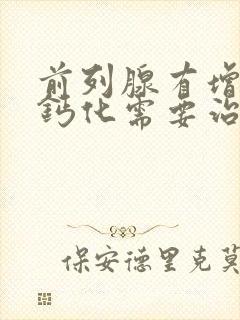 前列腺有增
鈣化需要治
保安德里克莫